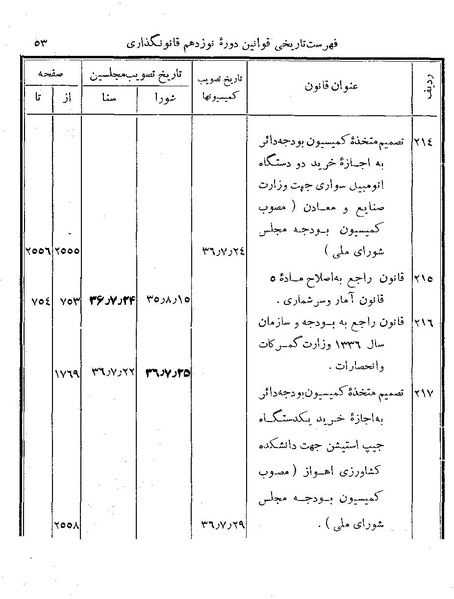 فهرست تاریخی قوانین دورهٔ نوزدهم قانونگذاری ۵۳
ردیف عنوان قانون تاریخ تصویب کمیسیونها تاریخ تصویب مجلسین صفحه
شورا سنا از تا
۲۱۴ تصمیم متخذهٔ کمیسیون بودجه دائر
به اجازهٔ خرید دو دستگاه
اتومبیل سواری جهت وزارت
صنایع و معادن ( مصوب
کمیسیون بودجه مجلس
شورای ملی ) ۳۶٫۷٫۲۴ ۲۵۵۵ ۲۵۵۶
۲۱۵ قانون راجع به اصلاح مادهٔ ۵
قانون آمار و سرشماری . ۳۵٫۸٫۱۵ ۳۶٫۷٫۲۴ ۷۵۳ ۷۵۴
۲۱۶ قانون راجع به بودجه و سازمان
سال ۱۳۳۶ وزارت گمرکات
و انحصارات . ۳۶٫۷٫۲۵ ۳۶٫۷٫۲۲ ۱۷۶۹
۲۱۷ تصمیم متخذهٔ کمیسیون بودجه دائر
به اجازهٔ خرید یکدستگاه
جیپ استیشن جهت دانشکده
کشاورزی اهواز ( مصوب
کمیسیون بودجه مجلس
شورای ملی ) . ۳۶٫۷٫۲۹ ۲۵۵۸